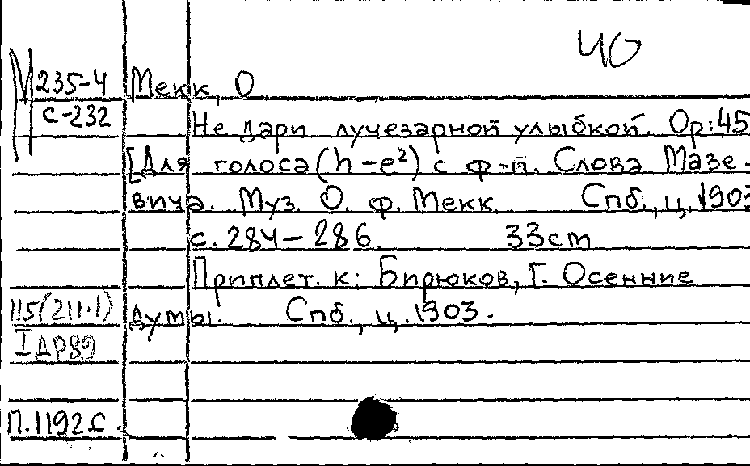 ЧО
М 235-4 Мекк, О
с-232
Не дари лучезарной улыбкой. Ор:45
[Для голоса (h-e²) с ф-п. Слова Мазе-
вича. Муз. О. ф. Мекк. Спб., ц. 1903
с. 284-286. 33cm
Приплет. к: Бирюков, Г. Осенние
115(211.1) думы. Спб., ц. 1903.
I др89
П.1192с.